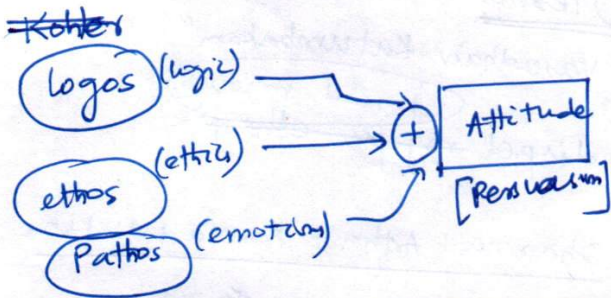 Kohler
Logos (logic)
ethos (ethics)
Pathos (emotions)
+
Attitude
[Persuasion]